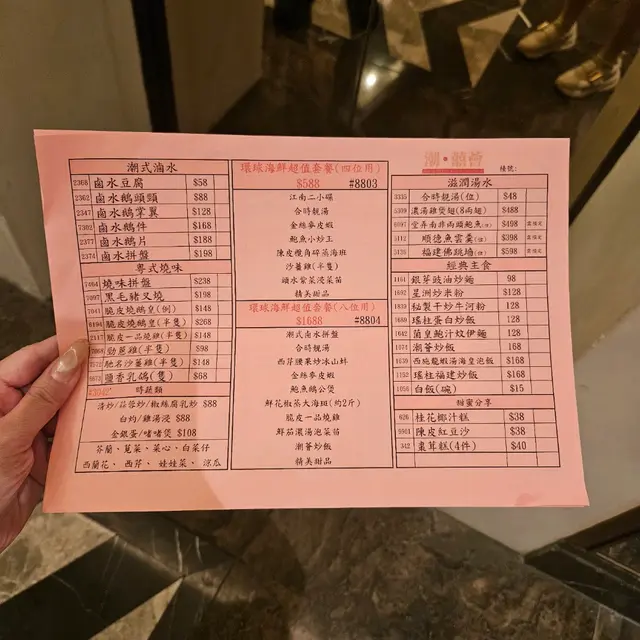 潮式滷水
2368 鹵水豆腐 $58
2362 鹵水鵝頭頸 $88
2347 鹵水鵝掌翼 $128
7302 鹵水鵝件 $168
2377 鹵水鵝片 $188
2374 鹵水拼盤 $198
粵式燒味
7464 燒味拼盤 $238
7097 黑毛豬叉燒 $198
7041 脆皮燒鵝皇(例) $148
脆皮燒鵝皇(半隻) $268
脆皮一品燒雞(半隻) $148
勁蔥雞(半隻) $98
馳名沙薑雞(半隻) $148
鹽香乳鴿(隻) $68
時蔬類
清炒/蒜蓉炒/椒絲腐乳炒 $88
白灼/雞湯浸 $88
金銀蛋/啫啫煲 $108
芥蘭、莧菜、菜心、白菜仔
西蘭花、西芹、娃娃菜、涼瓜
環球海鮮超值套餐(四位用)
$588 #8803
江南二小碟
合時靚湯
金絲麥皮蝦
鮑魚小炒王
陳皮欖角碎蒸海班
沙薑雞(半隻)
頭水紫菜浸菜苗
精美甜品
環球海鮮超值套餐(八位用)
$1688 #8804
潮式鹵水拼盤
合時靚湯
西芹腰果炒冰山蚌
金絲麥皮蝦
鮑魚鵝公煲
鮮花椒蒸大海班(約2斤)
脆皮一品燒雞
鮮茄濃湯泡菜苗
潮薈炒飯
精美甜品
樓號:
滋潤湯水
3335 合時靚湯(位) $48
濃湯雞煲翅(8両翅) $488
堂弄南非兩頭鮑魚(位) $498
5112 順德魚雲羹(位) $398
福建佛跳牆(位) $598
經典主食
1161 銀芽豉油炒麵 98
1692 星洲炒米粉 128
1833 秘製干炒牛河粉 128
1689 瑤柱蛋白炒飯 128
1642 菌皇鮑汁炆伊麵 128
1074 潮薈炒飯 168
1630 西施龍蝦湯海皇泡飯 $168
1152 瑤柱福建炒飯 $168
1056 白飯(碗) $15
甜蜜分享
626 桂花椰汁糕 $38
5901 陳皮紅豆沙 $38
342 棗茸糕(4件) $40